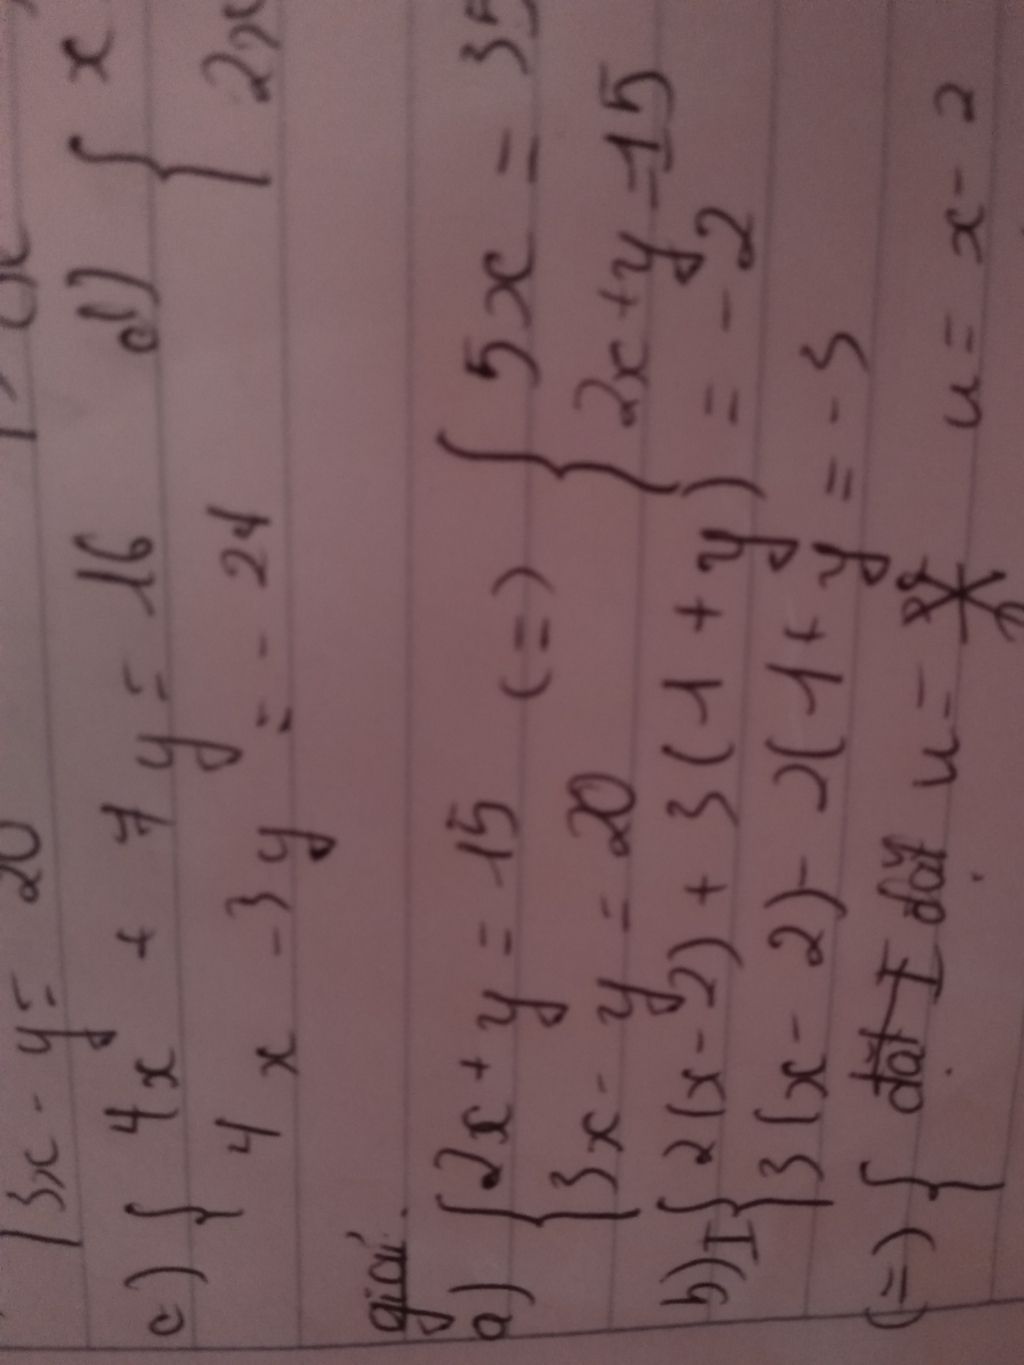 3x - y = 20
c) { 4x + 7y = 16 d) { x
4x - 3y = - 24 2x
giải.
a) { 2x + y = 15 (=) { 5x = 35
3x - y = 20 2x + y = 15
b) I { 2(x - 2) + 3(1 + y) = - 2
3(x - 2) - 2(1 + y = - 3
(=) { đặt I đặt u = u = x - 2